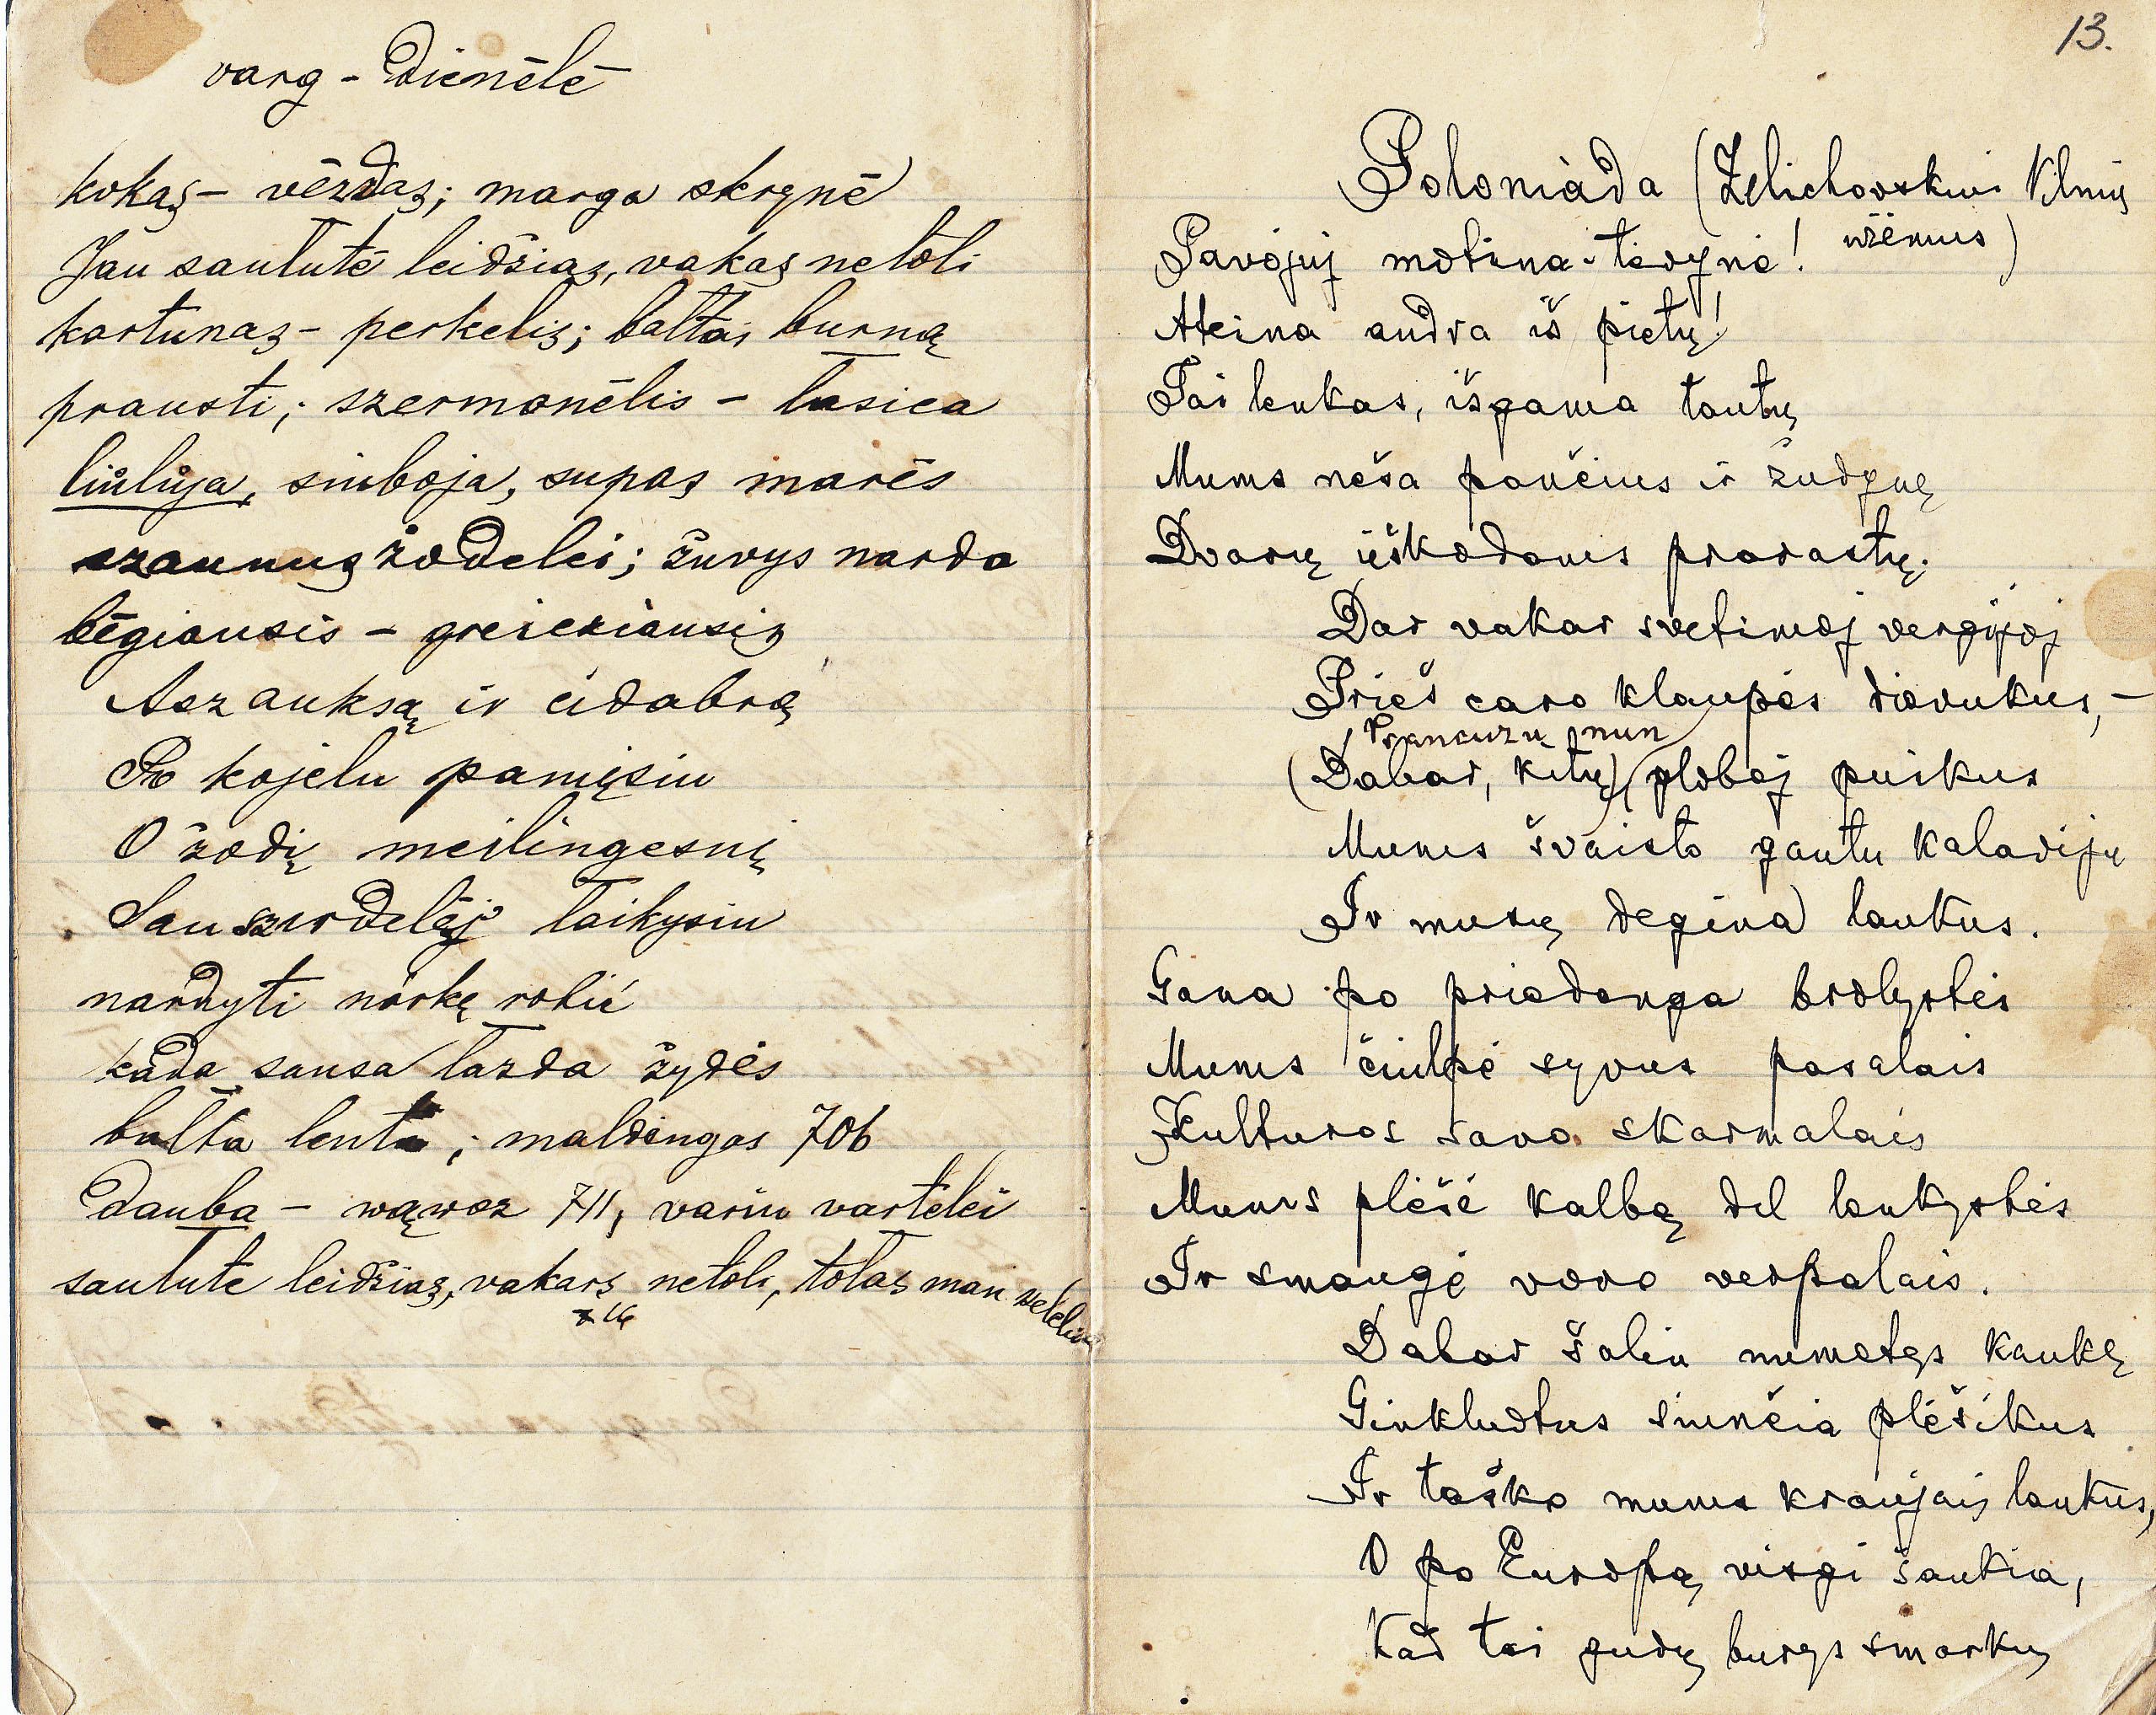 varg-dienėlė
kokaş – vėzdaş; marga skrynė
Jau saulutė leidžiaş, vakaş netoli
kartunaş – perkeliş; baltai burną
prausti; szermonėlis – lasica
liůlůja, siuboja, supaş marės
szaunuş žodelei; žuvys nardo
bėgiausis – greicziausiş
Asz auksą ir cidabrą
Po kojelu pamįsiu
O žodį meilingesnį
Sau szirdelėj laikysiu
nardyti nórkę robić
kada sausa lazda žydės
balta lenta; maldingas 706
dauba – wąwoz 711, variu vartelei
saulute leidžiaş, vakarş netoli, tolaş man kelelis
716
13.
Poloniada (Želichovskiui Vilnių
užėmus)
Pavojuj motina-tėvynė!
Ateina audra iš pietų!
Tai lenkas, išgama tautų
Mums neša pančius ir žudynę
Dvarų ieškodams prarastų.
Dar vakar svetimoj vergijoj
Prieš caro klaupės dievukus, –
Prancuzų nun
(Dabar, kitų) globoj puikus
Mums švaisto gautu kalaviju
Ir musų degina laukus.
Gana po priedanga brolystės
Mums čiulpė syvus pasalais
Kulturos savo skarmalais
Mums plėšė kalbą dėl lenkystės
Ir smaugė voro verpalais.
Dabar šalin numetęs kaukę
Ginkluotus siunčia plėšikus
Ir taško mums kraujais laukus,
O po Europą visgi šaukia,
Kad tai gudų burys smarkų